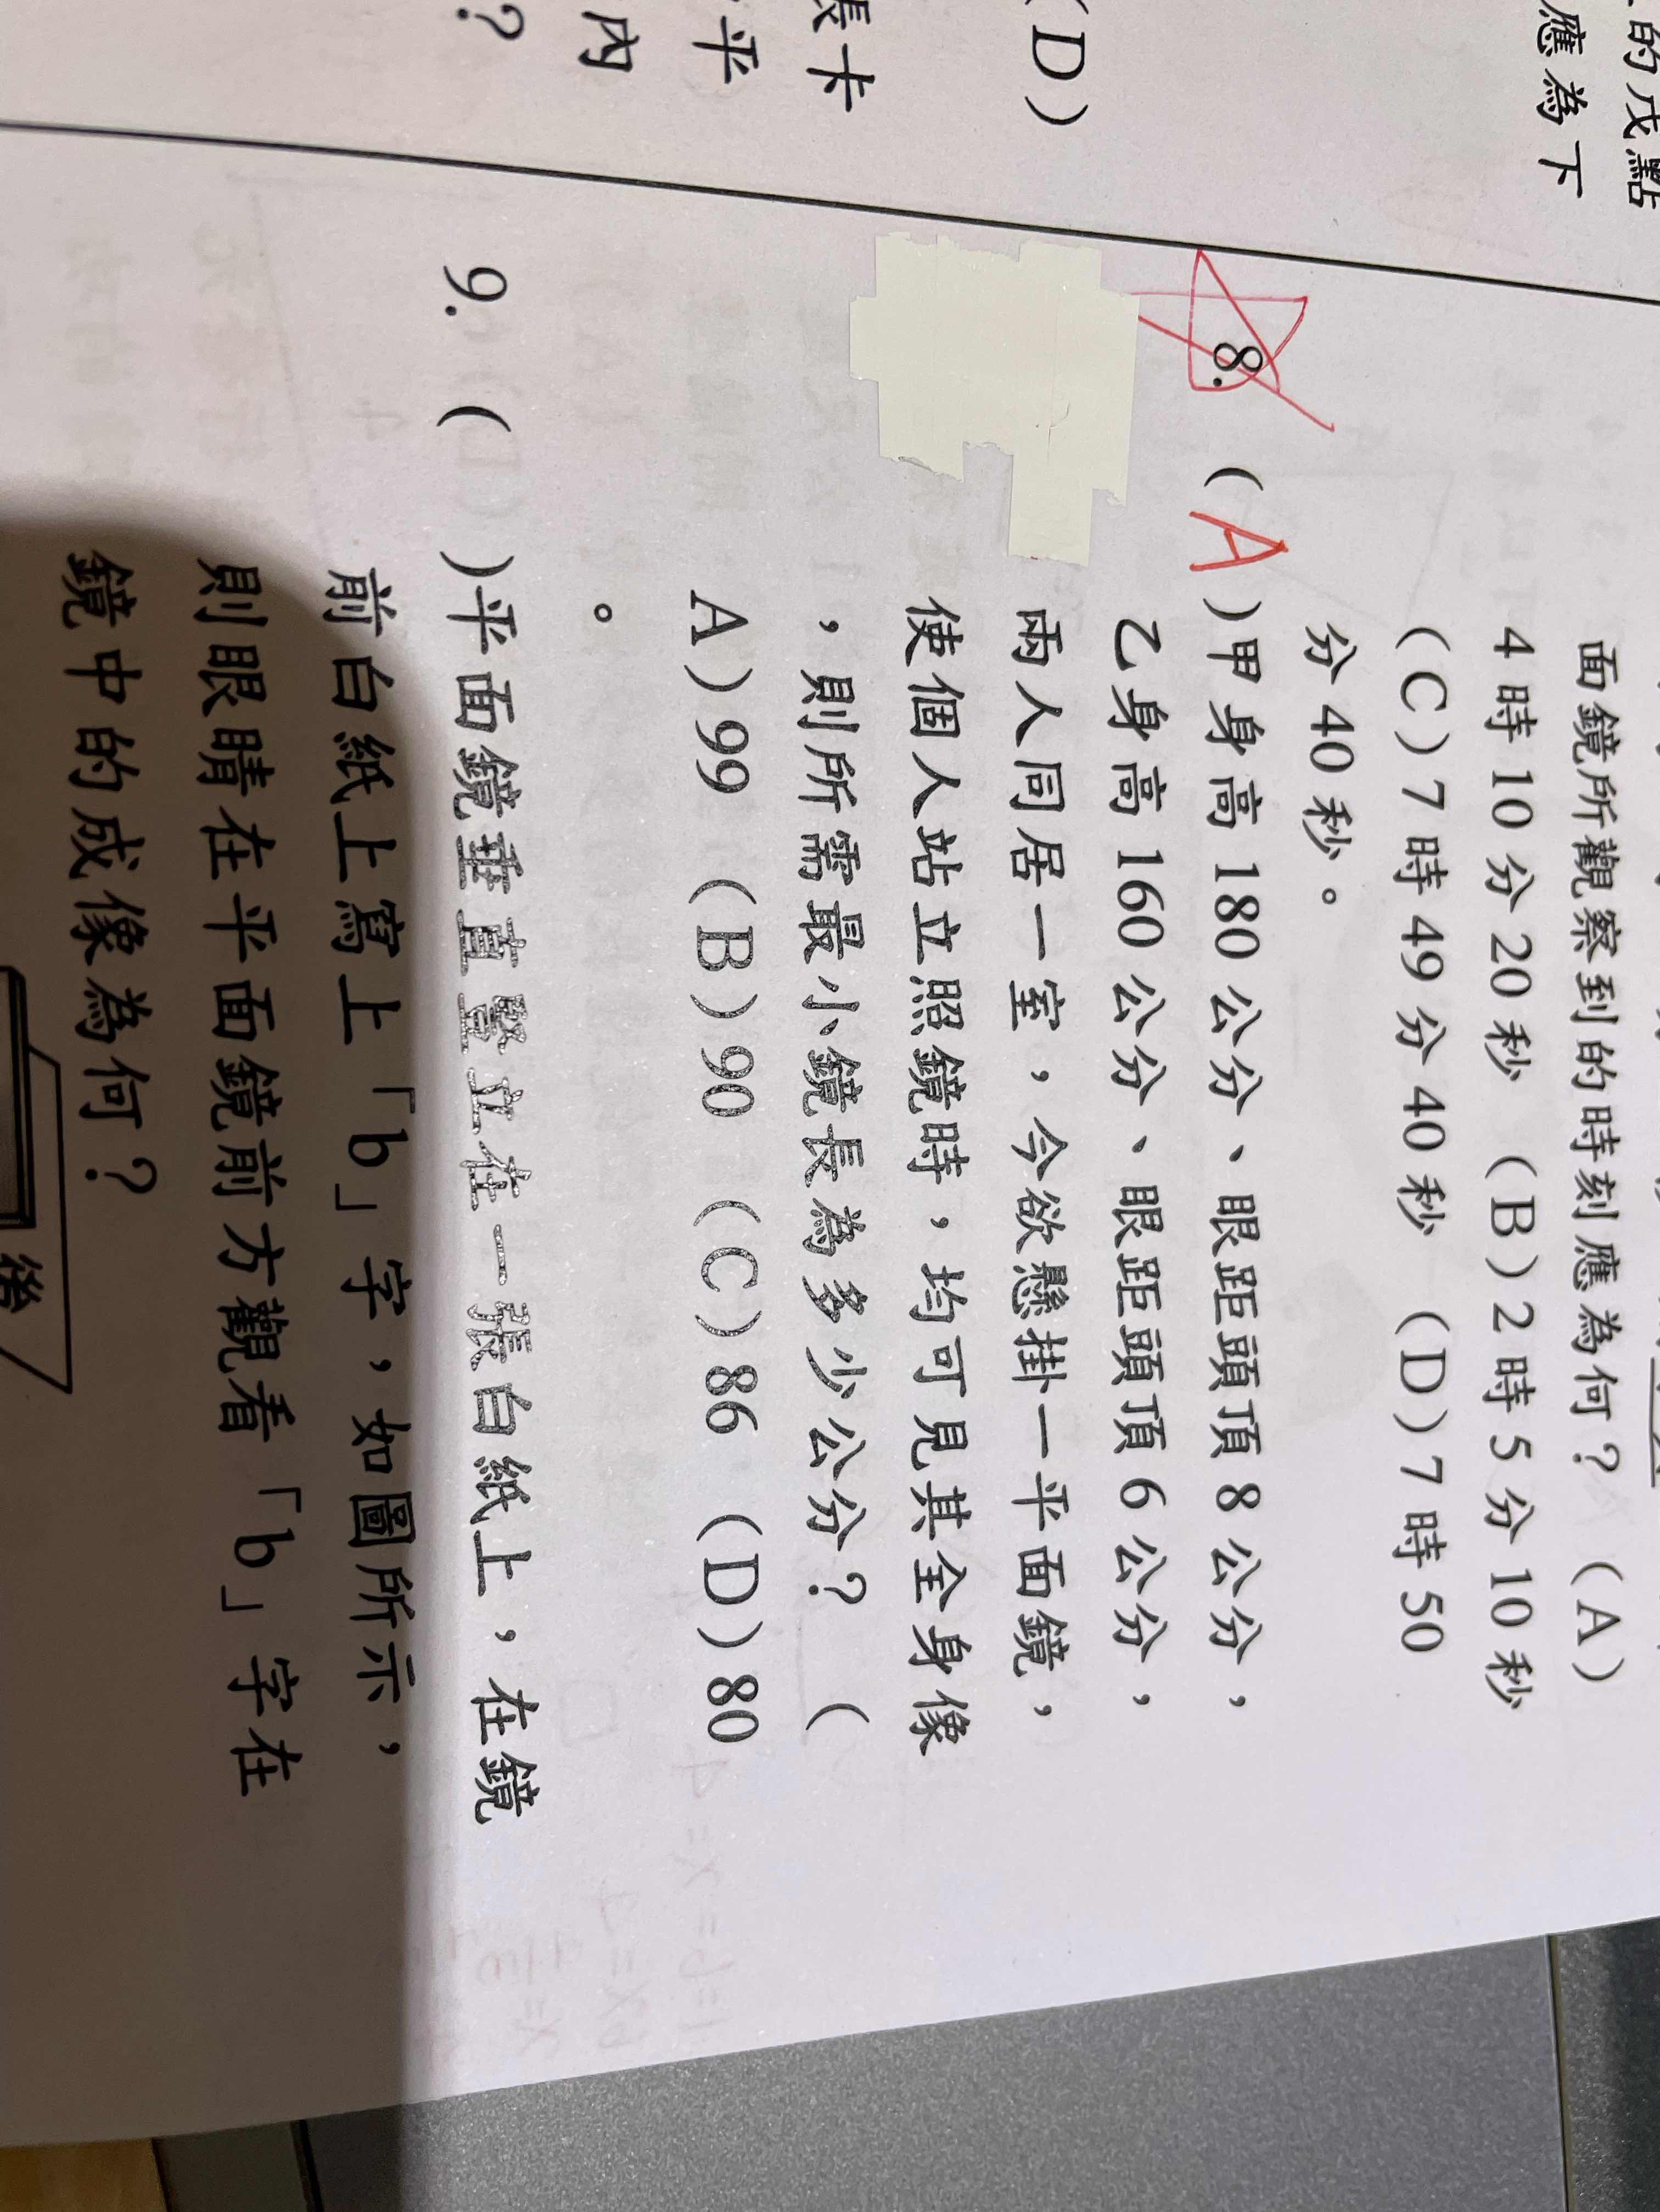 的戊點
應為下
(D)
長卡
平
內
?
面鏡所觀察到的時刻應為何?(A)
4時10分20秒 (B)2時5分10秒
(C)7時49分40秒 (D)7時50
分40秒。
8. (A)甲身高180公分、眼距頭頂8公分,
乙身高160公分、眼距頭頂6公分,
兩人同居一室,今欲懸掛一平面鏡,
使個人站立照鏡時,均可見其全身像
,則所需最小鏡長為多少公分?(
A)99 (B)90 (C)86 (D)80
。
9. ( )平面鏡垂直豎立在一張白紙上,在鏡
前白紙上寫上「b」字,如圖所示,
則眼睛在平面鏡前方觀看「b」字在
鏡中的成像為何?
後